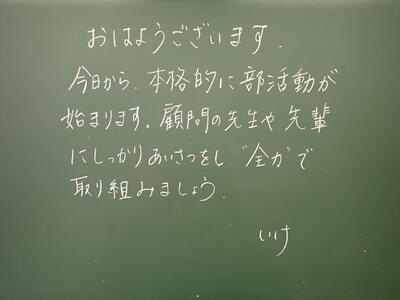 おはようございます.
今日から、本格的に部活動が
始まります。顧問の先生や先輩
にしっかりあいさつをし、"全力"で
取り組みましょう.
いけ